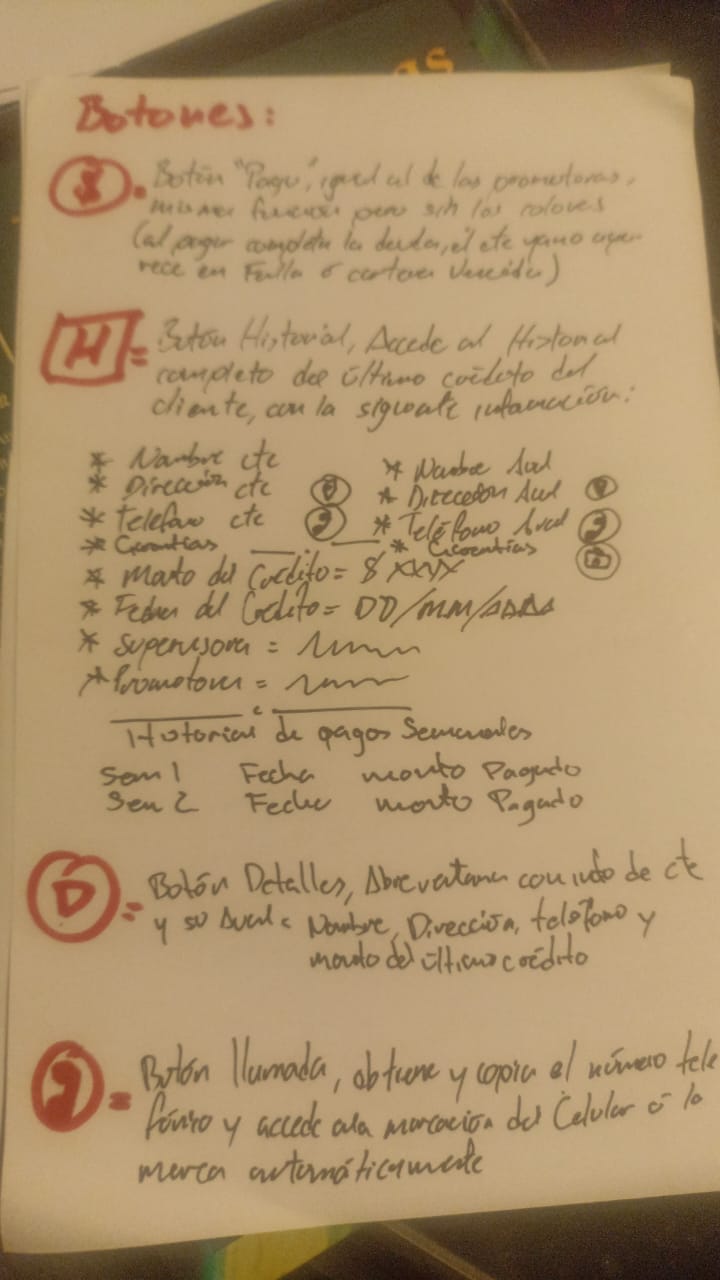 as
Botones:
$ = Botón "Pago", igual al de las promotoras,
misma función pero sin los colores
(al pagar completa la deuda, el cte ya no apa-
rece en Falla o cartera Vencida)
H = Botón Historial, Accede al Historial
completo del último crédito del
cliente, con la siguiente información:
* Nombre cte * Nombre Aval
* Dirección cte * Dirección Aval
* Teléfono cte * Teléfono Aval
* Garantías * Garantías
* Monto del Crédito = $ XXXX
* Fecha del Crédito = DD/MM/AAAA
* Supervisora =
* Promotora =
Historial de pagos Semanales
Sem 1 Fecha monto Pagado
Sem 2 Fecha monto Pagado
D = Botón Detalles, Abre ventana con info de cte
y su Aval: Nombre, Dirección, teléfono y
monto del último crédito
= Botón llamada, obtiene y copia el número tele
fónico y accede a la marcación del Celular ó lo
marca automáticamente